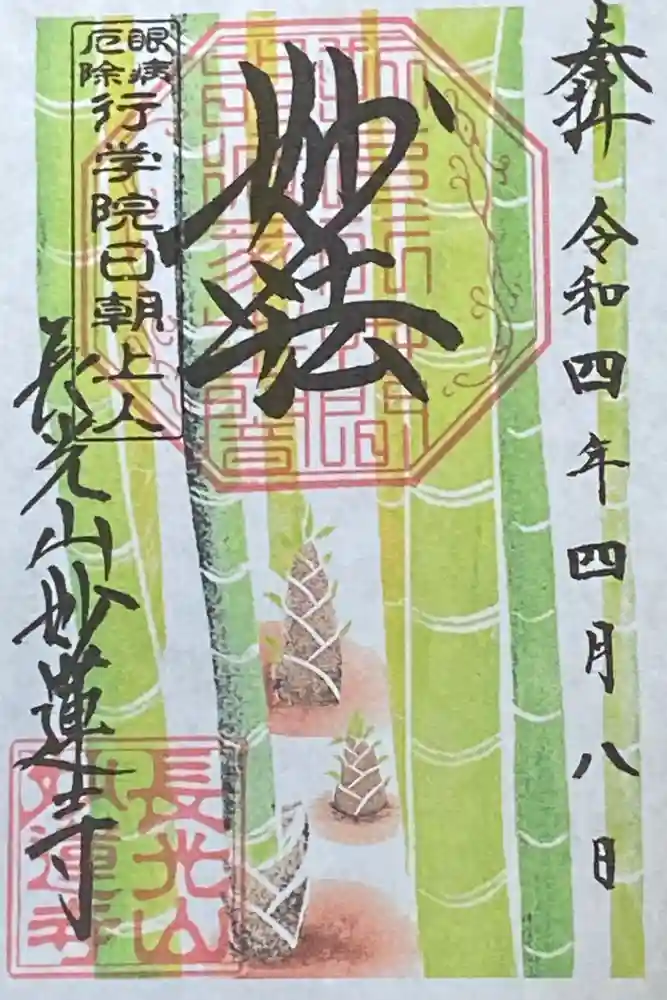 奉拝
令和四年四月八日
妙法
眼病
厄除
行学院日朝上人
長光山妙蓮寺
長光山
妙蓮寺